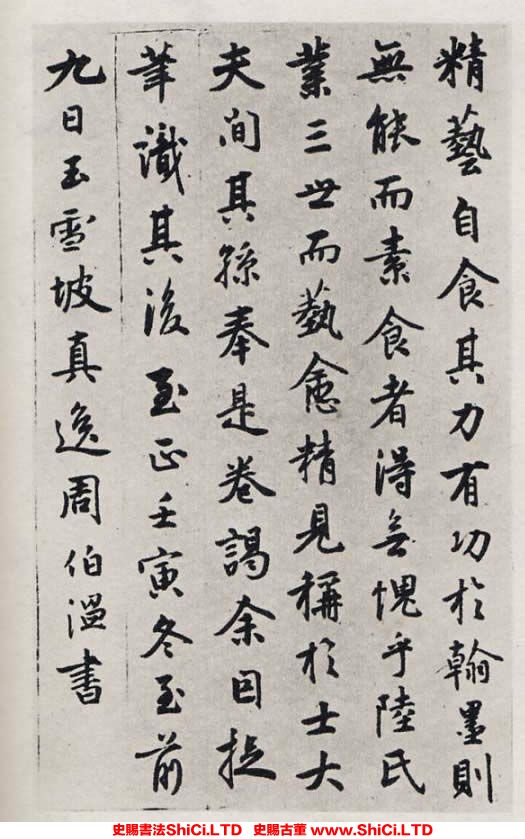 精藝自食其力有功於翰墨則
無能而素食者得無愧乎陸氏
業三世而藝愈精見稱於士大
夫間其孫奉是卷謁余因捉
筆識其後至正壬寅冬至前
九日玉雪坡真逸周伯溫書
史賜書法ShiCi.LTD 史賜古董 www.ShiCi.LTD